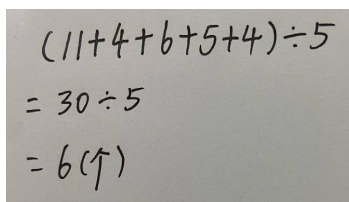 (11+4+6+5+4)÷5
= 30÷5
= 6(个)